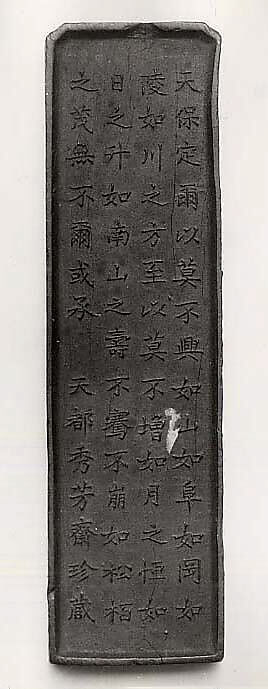 天保定爾以莫不興如山如阜如岡如
陵如川之方至以莫不增如月之恒如
日之升如南山之壽不騫不崩如松栢
之茂無不爾或承 天都秀芳齋珍藏